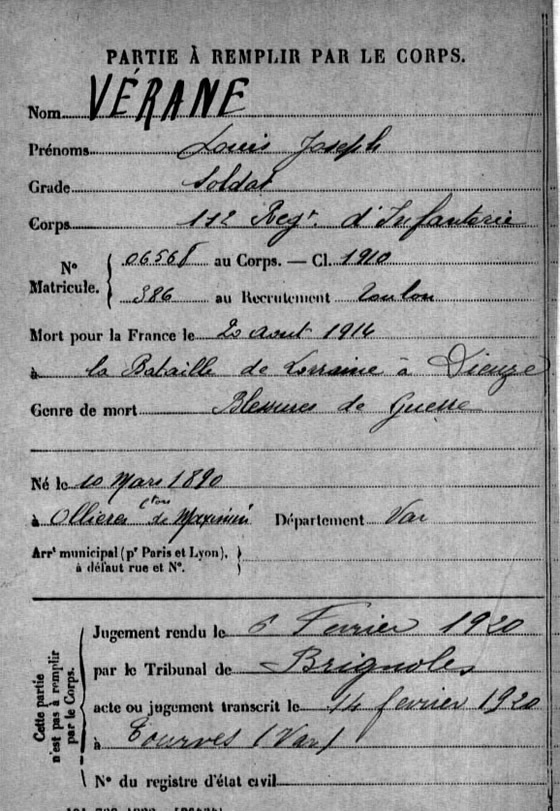 PARTIE À REMPLIR PAR LE CORPS.
Nom VÉRANE
Prénoms Louis Joseph
Grade Soldat
Corps 112 Regt. d'Infanterie
N° Matricule. { 06568 au Corps. — Cl. 1910
386 au Recrutement Toulon
Mort pour la France le 20 Aout 1914
à la Bataille de Lorraine à Dieuze
Genre de mort Blessures de Guerre
Né le 10 Mars 1890
à Ollieres Cton de Maximin Département Var
Arrt municipal (pr Paris et Lyon), à défaut rue et N°. }
Cette partie n'est pas à remplir par le Corps. {
Jugement rendu le 6 Fevrier 1920
par le Tribunal de Brignoles
acte ou jugement transcrit le 14 fevrier 1920
à Tourves (Var)
N° du registre d'état civil